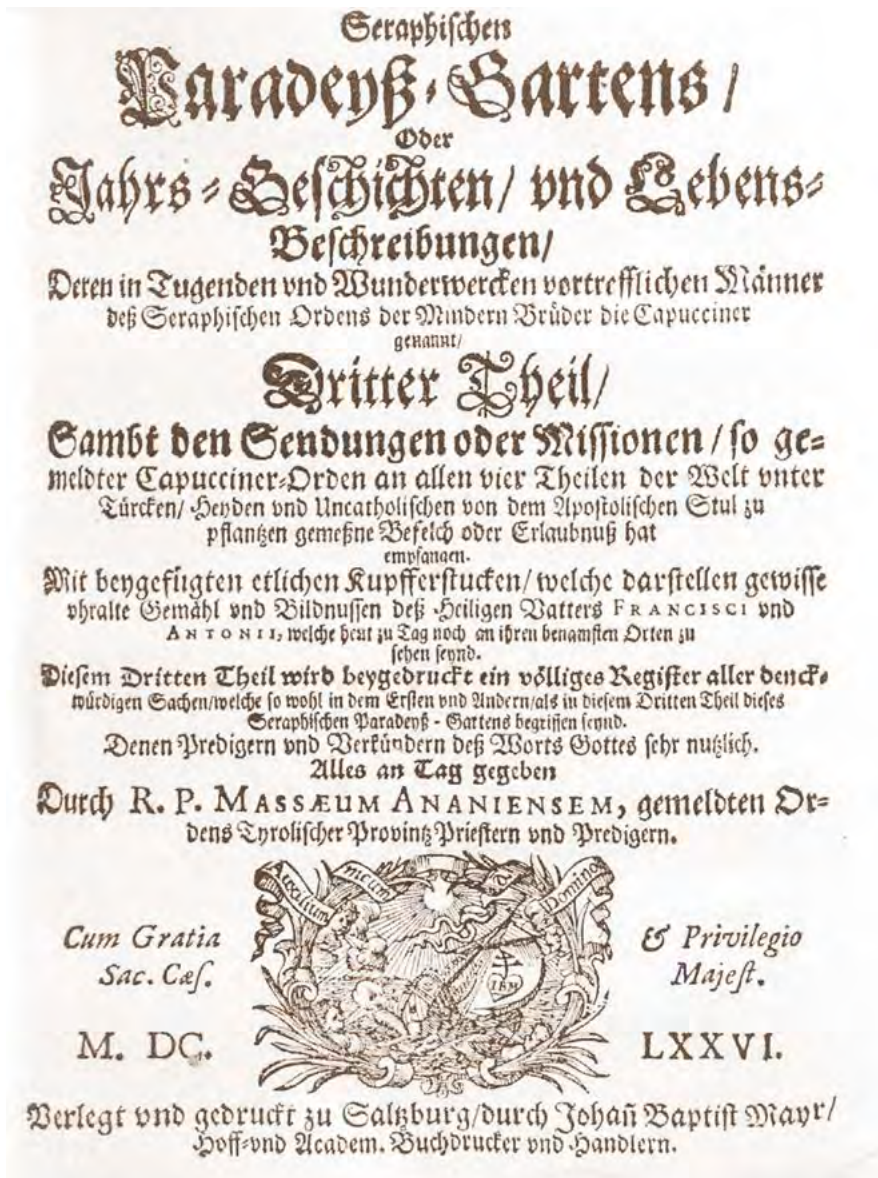 Seraphischen
Paradeyß-Gartens /
Oder
Jahrs-Geschichten / vnd Lebens-
Beschreibungen /
Deren in Tugenden vnd Wunderwercken vortrefflichen Männer
deß Seraphischen Ordens der Mindern Brüder die Capucciner
genannt /
Dritter Theil /
Sambt den Sendungen oder Missionen / so ge-
meldter Capucciner-Orden an allen vier Theilen der Welt vnter
Türcken / Heyden vnd Uncatholischen von dem Apostolischen Stul zu
pflantzen gemeßne Befelch oder Erlaubnuß hat
empfangen.
Mit beygefügten etlichen Kupfferstucken / welche darstellen gewisse
vhralte Gemähl vnd Bildnussen deß Heiligen Vatters FRANCISCI vnd
ANTONII, welche heut zu Tag noch an ihren benamsten Orten zu
sehen seynd.
Diesem Dritten Theil wird beygedruckt ein völliges Register aller denck-
würdigen Sachen / welche so wohl in dem Ersten vnd Andern / als in diesem Dritten Theil dieses
Seraphischen Paradeyß-Gartens begriffen seynd.
Denen Predigern vnd Verkündern deß Worts Gottes sehr nutzlich.
Alles an Tag gegeben
Durch R. P. MASSÆUM ANANIENSEM, gemeldten Or-
dens Tyrolischer Provintz Priestern vnd Predigern.
Auxilium meum à Domino
Cum Gratia & Privilegio
Sac. Cæs. Majest.
IHS
M. DC. LXXVI.
Verlegt vnd gedruckt zu Saltzburg / durch Johañ Baptist Mayr /
Hoff-vnd Academ. Buchdrucker vnd Handlern.